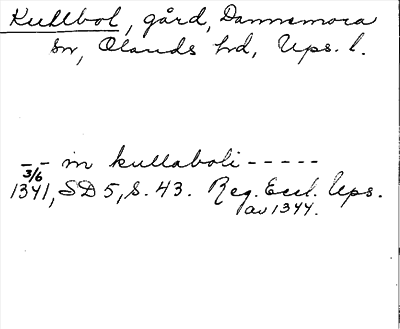 Kullbol, gård, Dannemora
sn, Olands hd, Ups. l.
- - in kullaboli - - - - -
3/6
1341, SD 5, S. 43. Reg. Eccl. Ups.
av 1344.